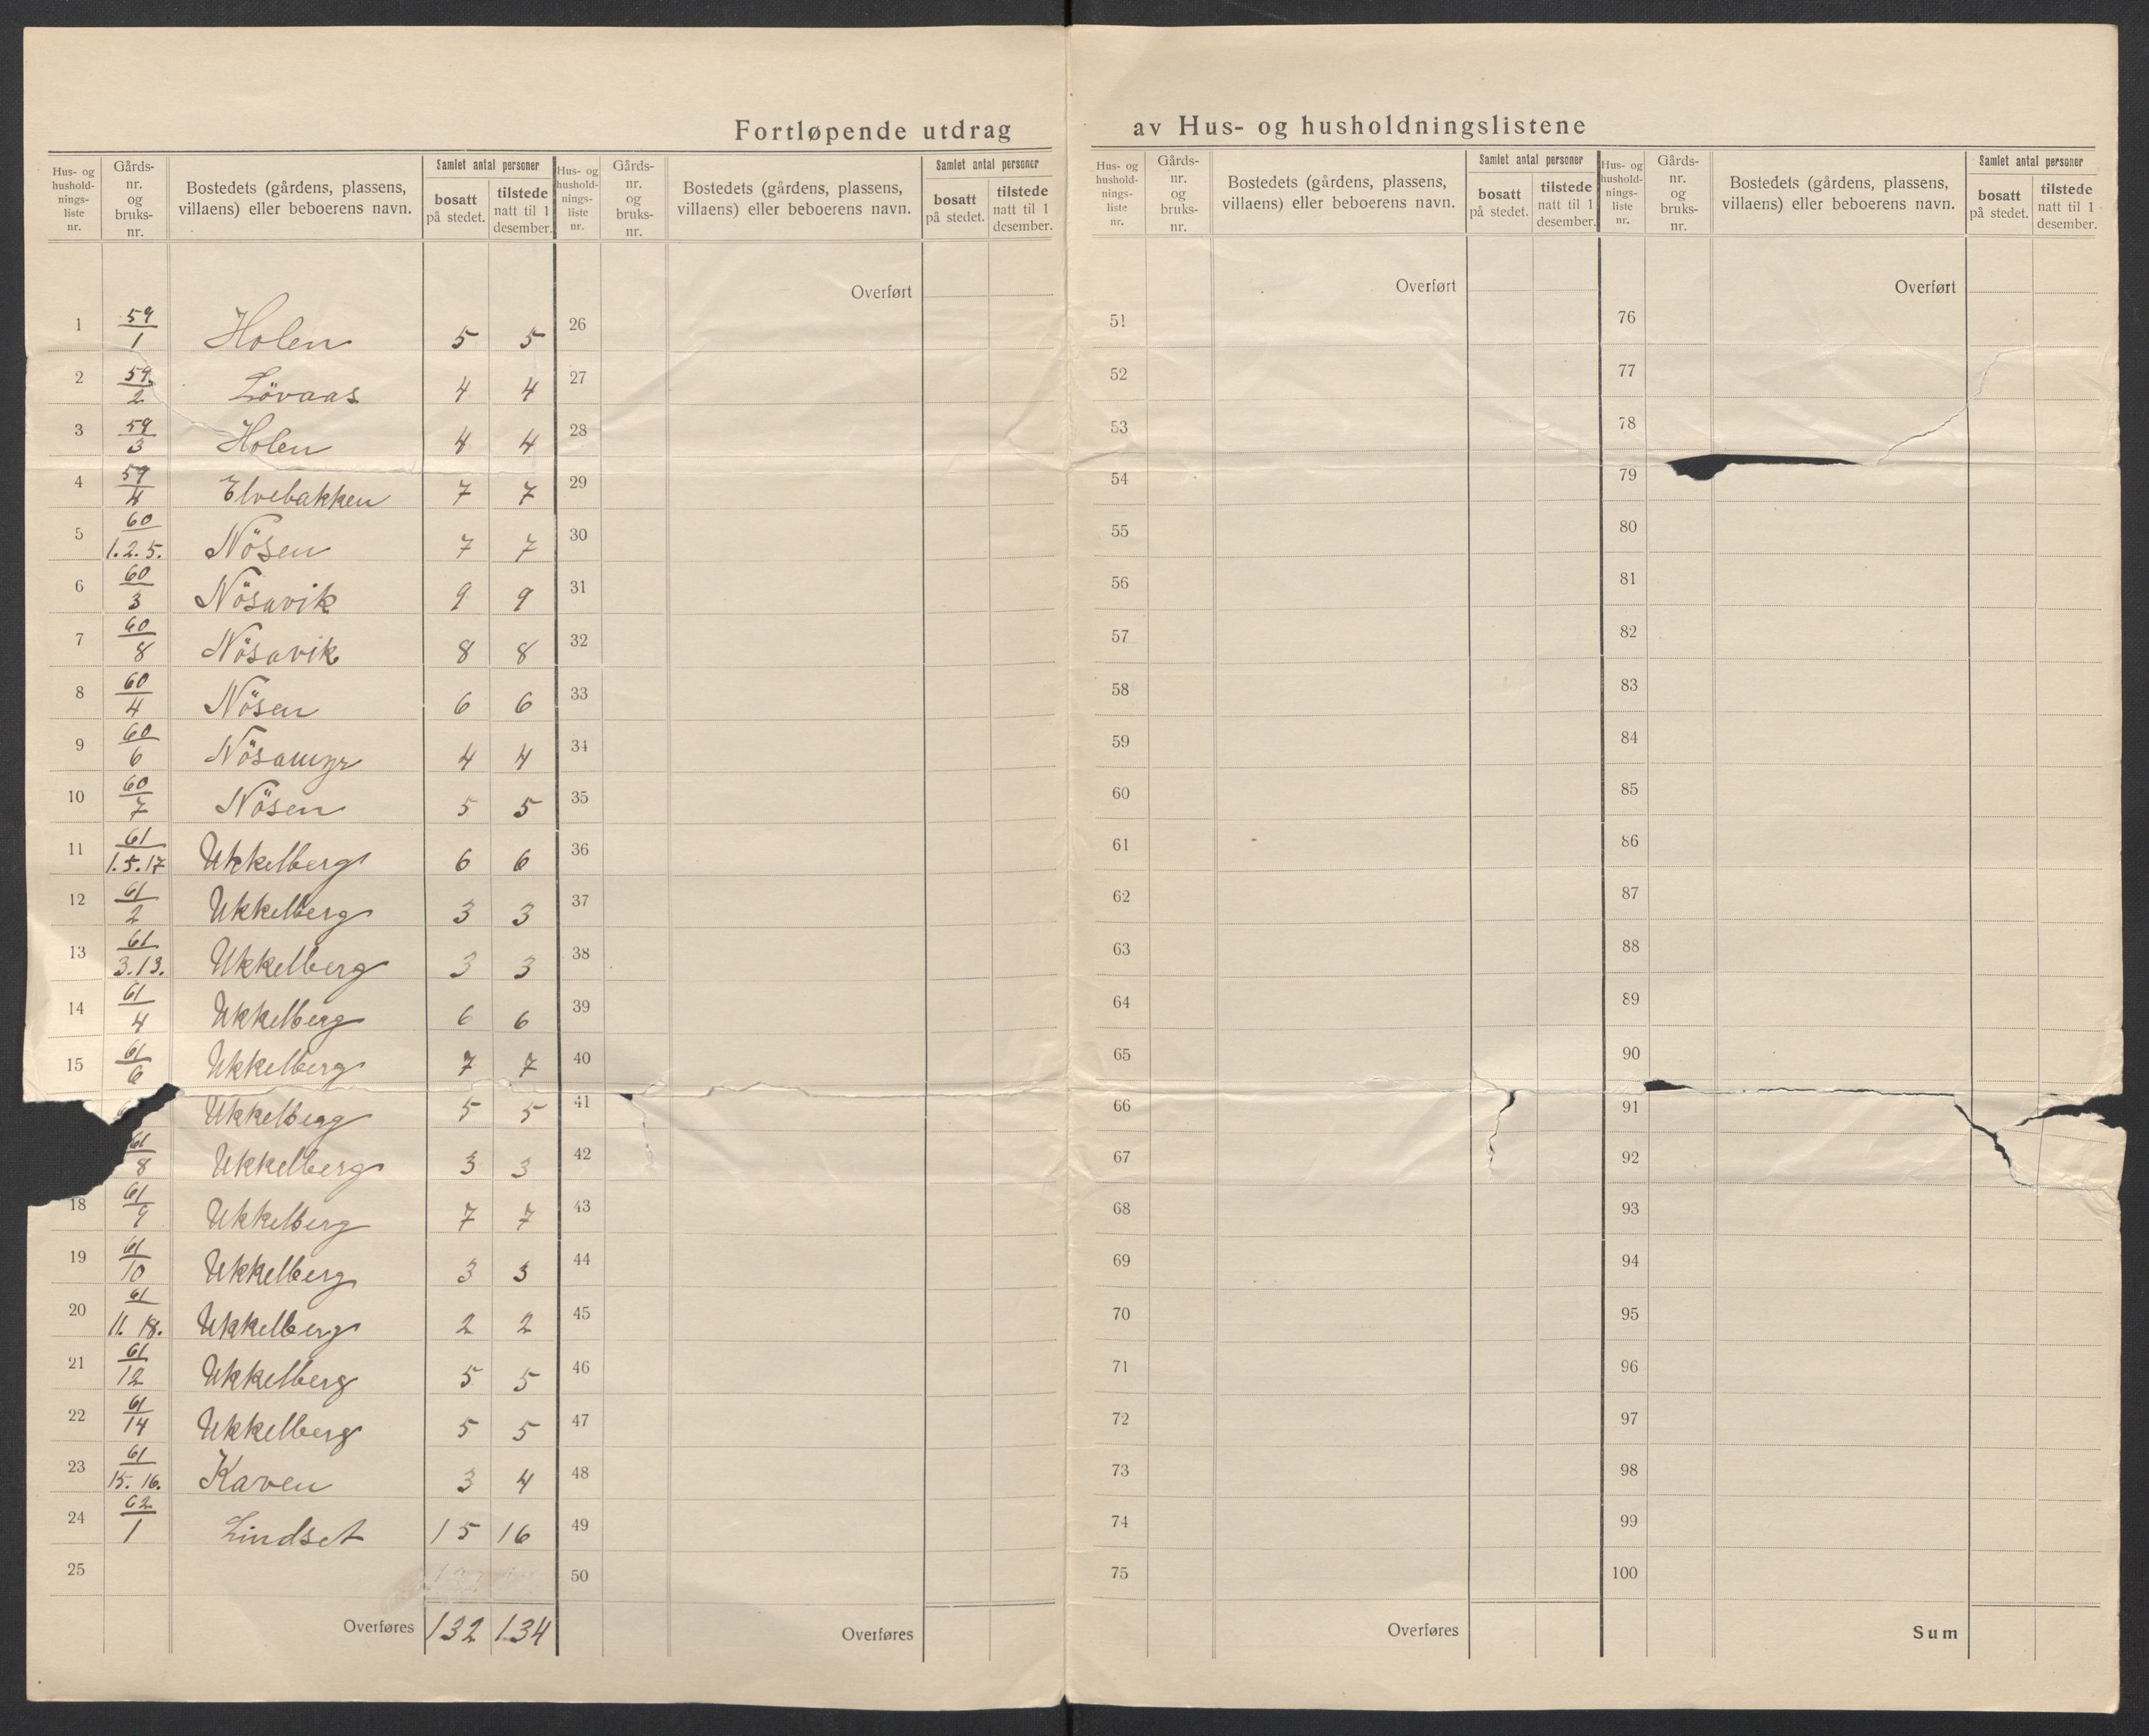 Fortløpende utdrag av Hus- og husholdningslistene
Hus- og husholdnings-liste nr. Gårds-nr. og bruks-nr. Bostedets (gårdens, plassens, villaens) eller beboerens navn. Samlet antal personer bosatt på stedet. tilstede natt til 1 desember.
Hus- og husholdnings-liste nr. Gårds-nr. og bruks-nr. Bostedets (gårdens, plassens, villaens) eller beboerens navn. Samlet antal personer bosatt på stedet. tilstede natt til 1 desember.
Hus- og husholdnings-liste nr. Gårds-nr. og bruks-nr. Bostedets (gårdens, plassens, villaens) eller beboerens navn. Samlet antal personer bosatt på stedet. tilstede natt til 1 desember.
Hus- og husholdnings-liste nr. Gårds-nr. og bruks-nr. Bostedets (gårdens, plassens, villaens) eller beboerens navn. Samlet antal personer bosatt på stedet. tilstede natt til 1 desember.
1 59/1 Holen 5 5
2 59/2 Lövaas 4 4
3 59/3 Holen 4 4
4 59/4 Elvebakken 7 7
5 60/1.2.5. Nösen 7 7
6 60/3 Nösavik 9 9
7 60/8 Nösavik 8 8
8 60/4 Nösen 6 6
9 60/6 Nösamyr 4 4
10 60/7 Nösen 5 5
11 61/1.5.17 Ukkelberg 6 6
12 61/2 Ukkelberg 3 3
13 61/3.13. Ukkelberg 3 3
14 61/4 Ukkelberg 6 6
15 61/6 Ukkelberg 7 7
Ukkelberg 5 5
61/8 Ukkelberg 3 3
18 61/9 Ukkelberg 7 7
19 61/10 Ukkelberg 3 3
20 61/11. 18. Ukkelberg 2 2
21 61/12 Ukkelberg 5 5
22 61/14 Ukkelberg 5 5
23 61/15. 16. Kaven 3 4
24 62/1 Lindset 15 16
25
Overføres 132 134
Overført
26
27
28
29
30
31
32
33
34
35
36
37
38
39
40
41
42
43
44
45
46
47
48
49
50
Overføres
Overført
51
52
53
54
55
56
57
58
59
60
61
62
63
64
65
66
67
68
69
70
71
72
73
74
75
Overføres
Overført
76
77
78
79
80
81
82
83
84
85
86
87
88
89
90
91
92
93
94
95
96
97
98
99
100
Sum